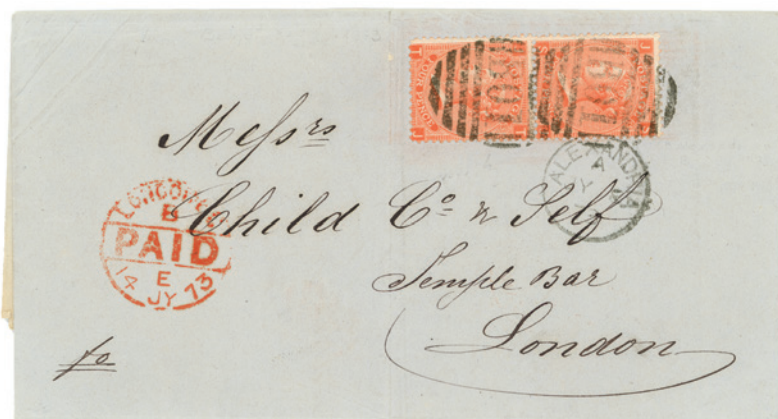 FOUR PENCE
B01
B01
ALEXANDRIA
A
JY
Messrs
Child Co & Self
Temple Bar
London
LONDON
E
PAID
E
14 JY 73